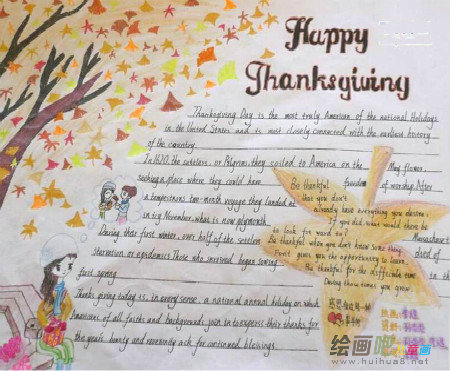 Happy
Thanksgiving
Thanksgiving Day is the most truly American of the national Holidays
in the United States and is most closely connected with the earliest history
of the country.
In 1620, the settlers, or Pilgrims, they sailed to America on the May flower,
seeking a place where they could have freedom of worship. After
a tempestuous two-month voyage they landed at
in icy November, what is now plymouth
Massachusett
During that first winter, over half of the settlers died of
Starvation or epidemics. Those who survived began sowing
in the
first spring
Thanks giving today is, in every sense, a national annual holiday on which
Americans of all faiths and backgrounds join in to express their thanks for
the year's bounty and reverently ask for continued blessings.
Be thankful
that you don't
already have everything you desire.
if you did, what would there be
to look for ward to?
Be thankful when you don't know Some thing
it gives you the opportunity to learn.
Be thankful for the difficult time
During those times you grow.
绘画吧
www.huihua8.net